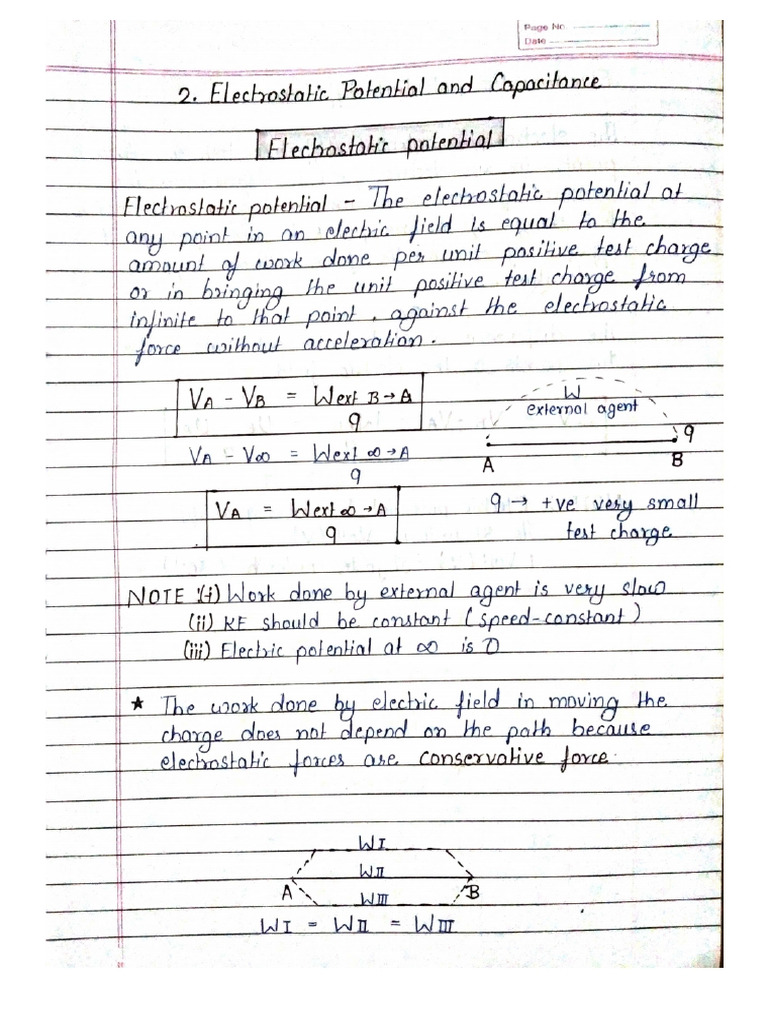 Page No.
Date
2. Electrostatic Potential and Capacitance
Electrostatic potential
Electrostatic potential - The electrostatic potential at
any point in an electric field is equal to the
amount of work done per unit positive test charge
or in bringing the unit positive test charge from
infinite to that point, against the electrostatic
force without acceleration.
VA - VB = Wext B→A
q
W
external agent
q
A B
VA - V∞ = Wext ∞→A
q
VA = Wext ∞→A
q
q → +ve very small
test charge
NOTE :(i) Work done by external agent is very slow
(ii) KE should be constant (speed-constant)
(iii) Electric potential at ∞ is 0
★ The work done by electric field in moving the
charge does not depend on the path because
electrostatic forces are conservative force.
WI
WII
A B
WIII
WI = WII = WIII